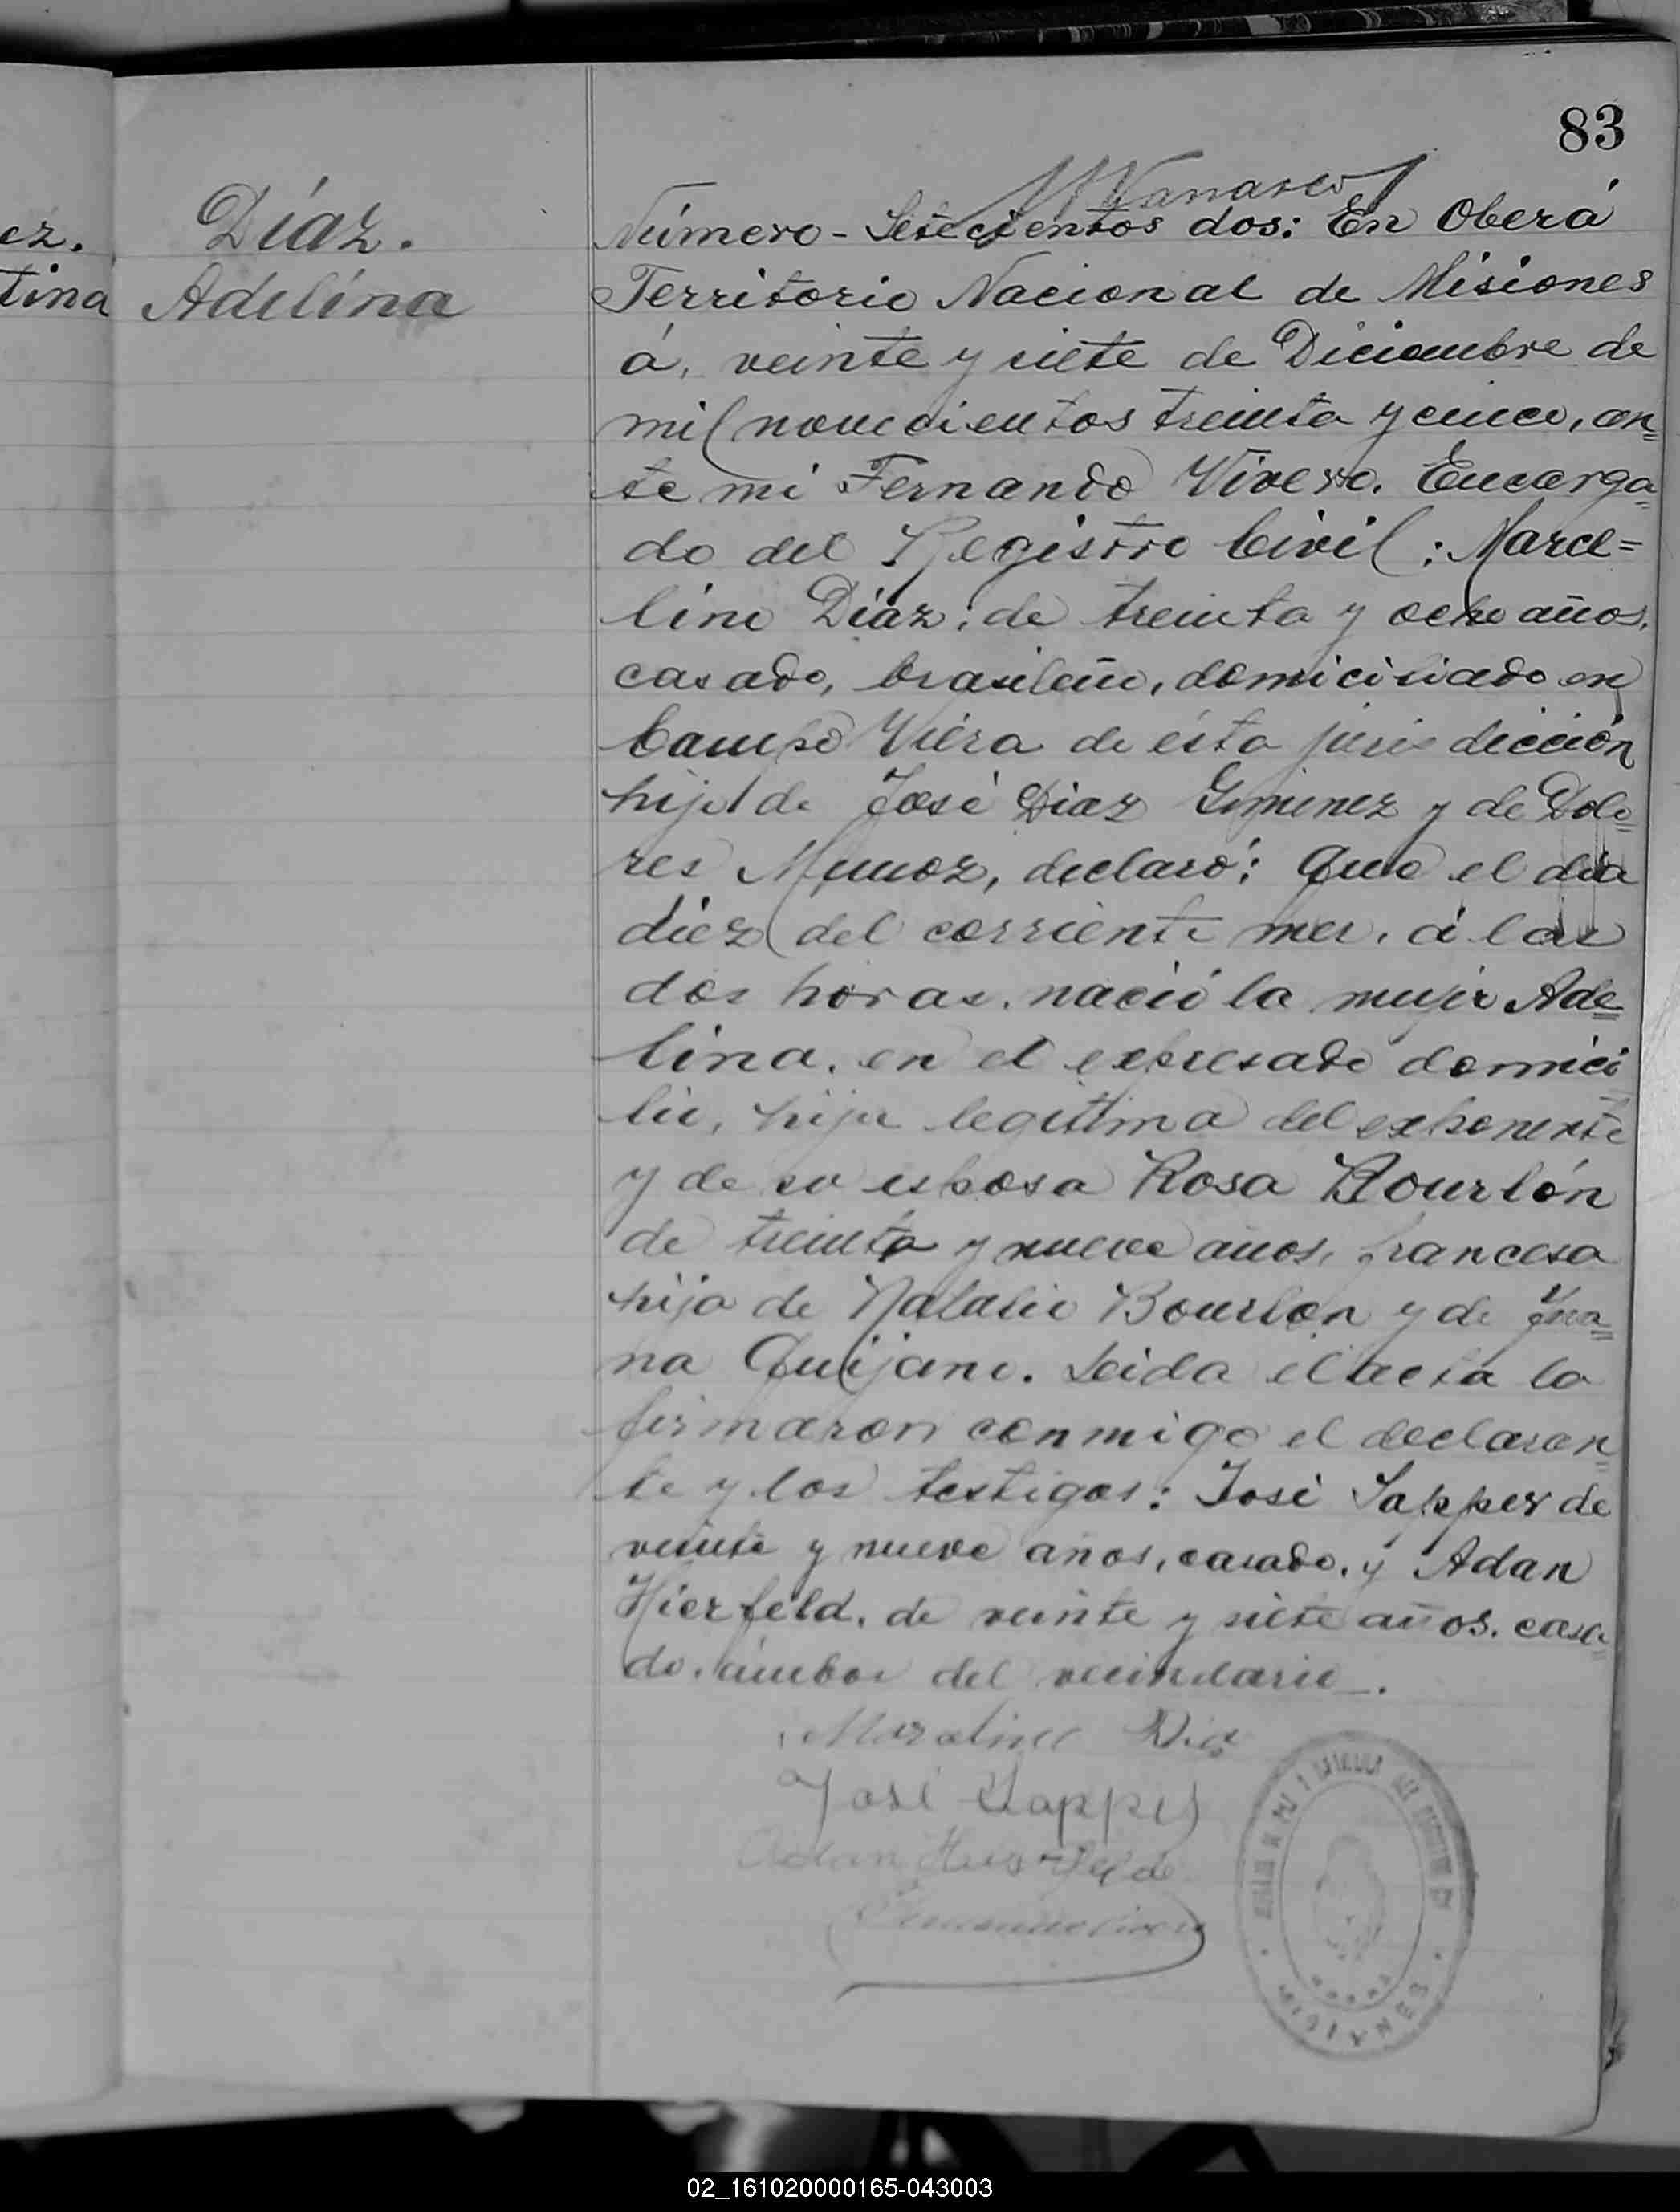 83
Díaz.
Adelina
ez.
tina
Número - Setecientos dos: En Oberá
Territorio Nacional de Misiones
á, veinte y siete de Diciembre de
mil novecientos treinta y cinco, an=
te mi Fernando Vivero. Encarga=
do del Registro Civil: Marce=
lino Díaz; de treinta y ocho años,
casado, brasileño, domiciliado en
Campo Viera de ésta jurisdicción
hijo de José Diaz Gimenez y de Dolo=
res Munoz, declaró: Que el dia
diez del corriente mes, á las
dos horas, nació la mujer Ade=
lina, en el expresado domici
lio, hija legitima del exponente
y de su esposa Rosa Bourlón
de treinta y nueve años, francesa
hija de Natalio Bourlon y de Jua=
na Quijano. Leida el acta la
firmaron conmigo el declaran=
te y los testigos: José Sapper de
veinte y nueve años, casado, y Adan
Hierfeld, de veinte y siete años, casa=
do, ámbos del vecindario.
José Sapper
MISIONES
02_161020000165-043003